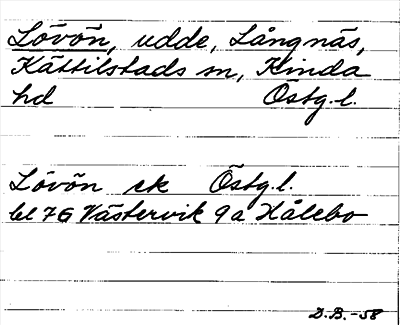 Lövön, udde, Långnäs,
Kättilstads sn, Kinda
hd Östg.l.
Lövön ek Östg.l.
bl 76 Västervik 9a Hålebo
D.B.-58